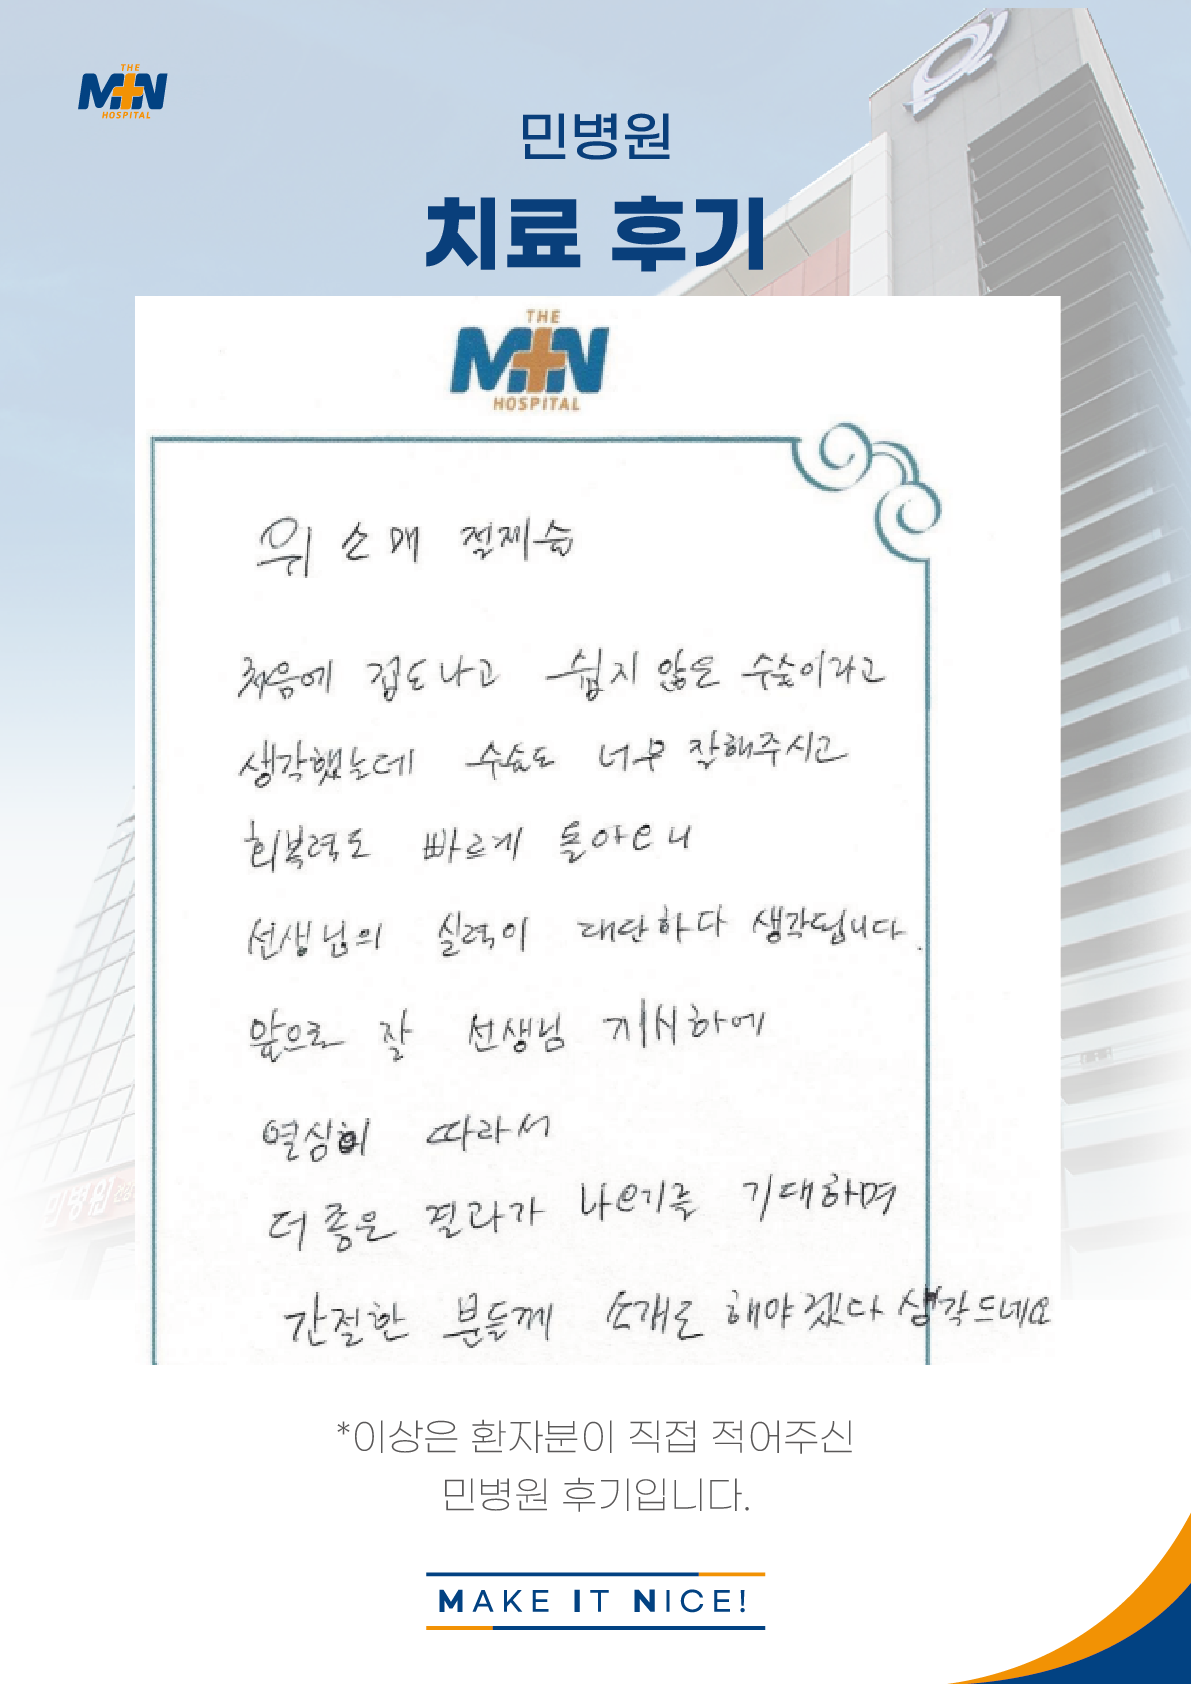 THE
MIN
HOSPITAL
민병원
치료 후기
THE
MIN
HOSPITAL
위 소매 절제술
처음에 겁도 나고 쉽지 않은 수술이라고
생각했는데 수술도 너무 잘해주시고
회복력도 빠르게 돌아오니
선생님의 실력이 대단하다 생각됩니다.
앞으로 잘 선생님 지시하에
열심히 따라서
더 좋은 결과가 나오기를 기대하며
간절한 분들께 소개도 해야겠다 생각드네요
민병원
*이상은 환자분이 직접 적어주신
민병원 후기입니다.
MAKE IT NICE!